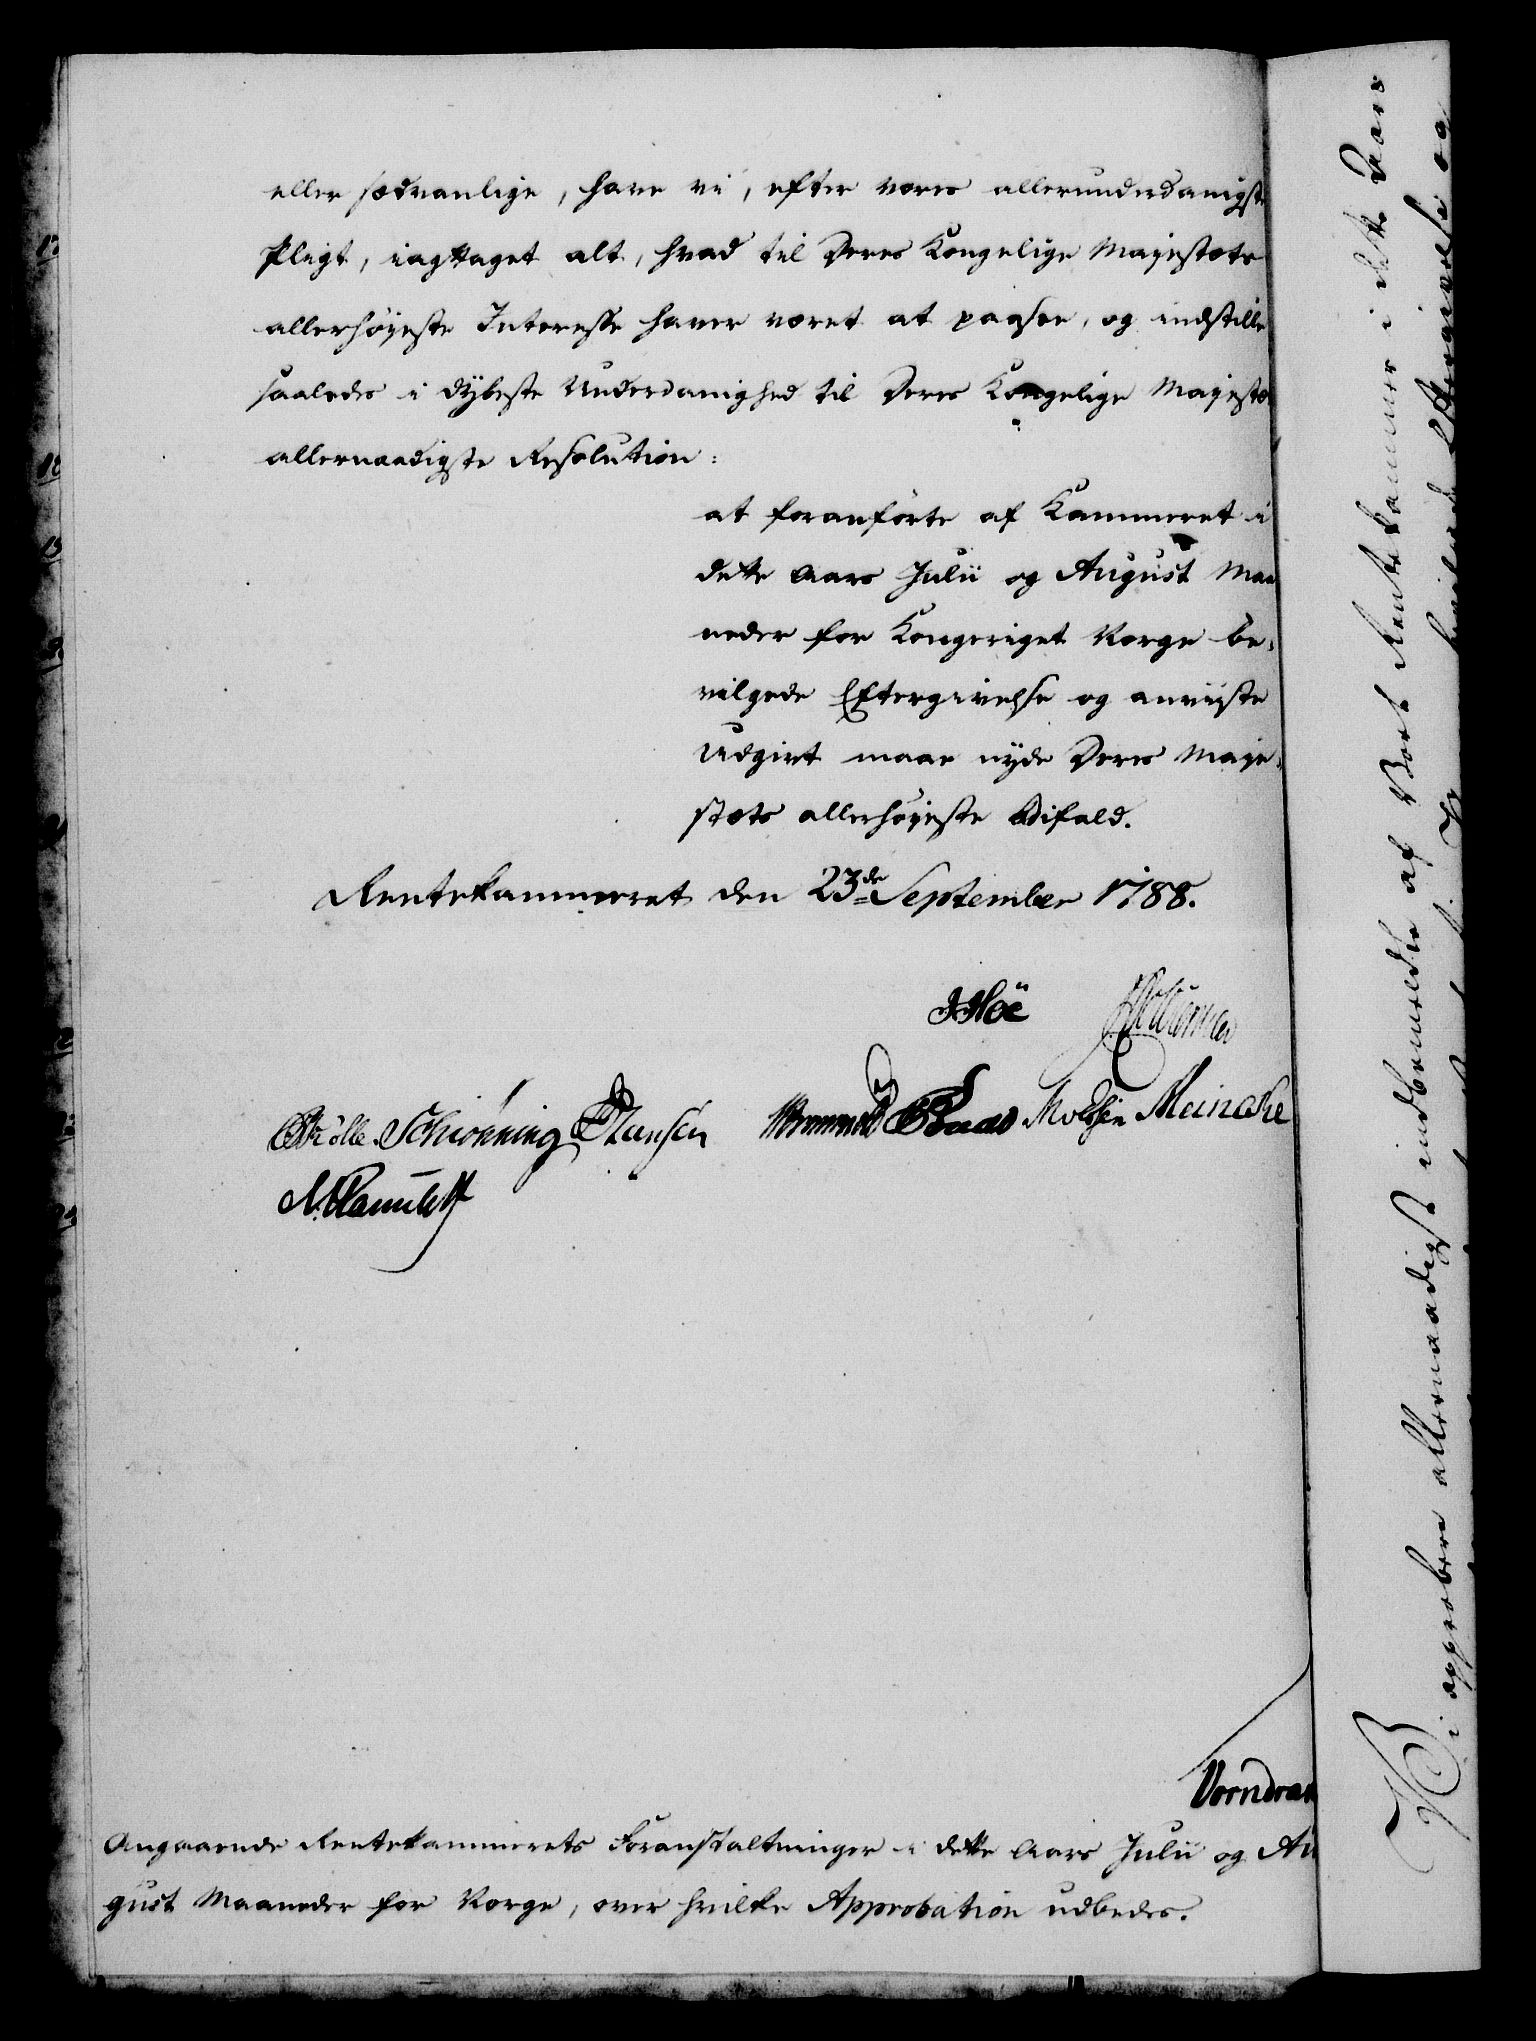 eller sædvanlige, have vi, efter vores allerunderdanigste
Pligt, iagttaget alt, hvad til Deres Kongelige Majestæts
allerhøyeste Interesse haver været at paasee, og indstille
saaledes i dybeste Underdanighed til Deres Kongelige Majestæts
allernaadigste Resolution:
at foranførte af Kammeret i
dette Aars Julii og August Maa
neder for Kongeriget Norge be-
vilgede Eftergivelse og anviiste
Udgivt maae nyde Deres Maje-
stæts allerhøyeste Bifald.
Rentekammeret den 23de September 1788.
Schiønning Hansen
Meincke
Angaaende Rentekammerets Foranstaltninger i dette Aars Julii og Au
gust Maaneder for Norge, over hvilke Approbation udbedes.
Vi approbere allernaadigst indbemeldte af Vort Rentekammer i dette Aars